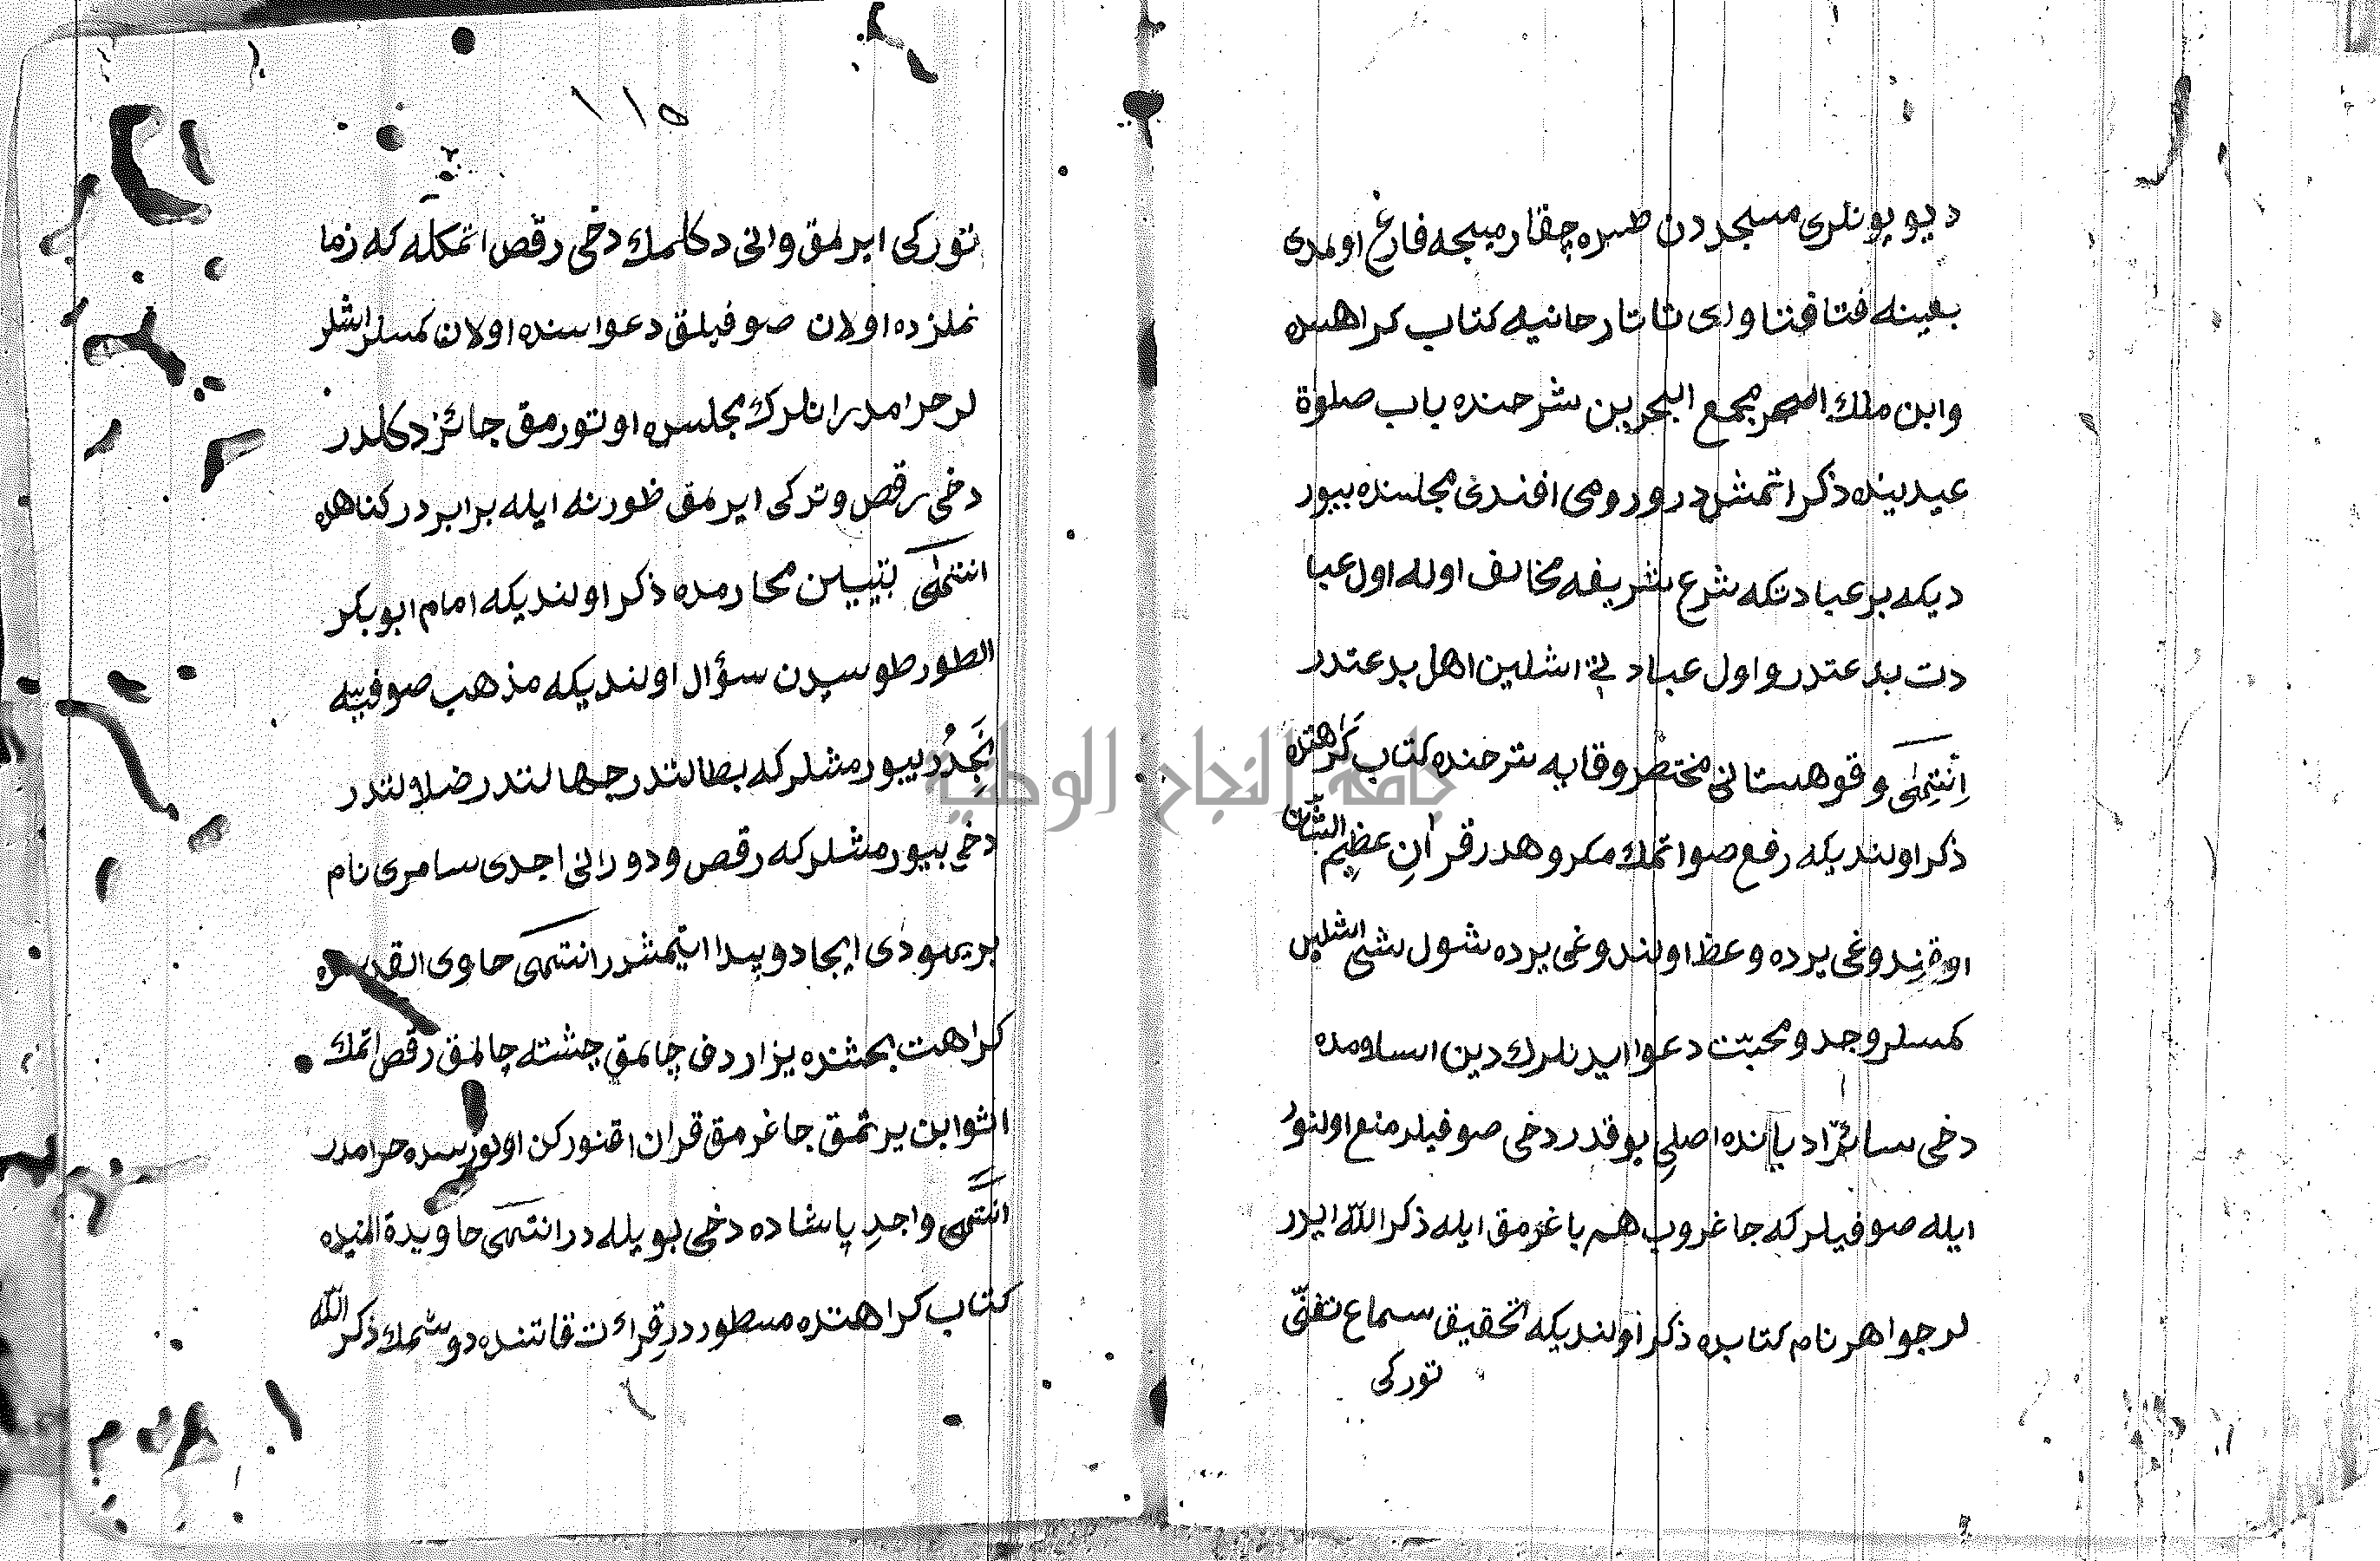 ديو بونلرى مسجددن طشره چقارمينجه فارغ اولمدى
بعينه فتاوای تاتارحانيه كتاب كراهسده
وابن ملك مجمع البحرين شرحنده باب صلوة
عيدينده ذكر اتمشدر ورومى افندى مجلسنده بيور
ديكه بر عبادتكه شرع شريفه مخالف اوله اول عبا
دت بدعتدر واول عبادتى اشلين اهل بدعتدر
اِنْتِهٰى وقوهستانى مختصر وقايه شرحنده كتاب كراهتده
ذكر اولنديكه رفع صوت اتمك مكروهدر قرآنِ عظيم الشان
اوقندوغى يرده وعظ اولندوغى يرده شول شئ اشلين
كمسلر وجد ومحبّت دعوا ايدنلرك دين اسلامده
دخى سائر اديانده اصلى يوقدر دخى صوفيلر منع اولنور
ايله صوفيلر كه جاغروب هم باغرمق ايله ذكر الله ايدر
لر جواهر نام كتابده ذكر اولنديكه تحقيق سماع تغنّى
توركى
١١٥
توركى ايرلمق وانى دكلمك دخى رقص اتمكله كه زما
نمزده اولان صوفيلق دعواسنده اولان كمسلر اشلر
لر حرامدر انلرك مجلسده اوتورمق جائز دكلدر
دخى رقص وتركى ايرمق ظورنه ايله برابردر كناهده
انتهٰى تبيين محارمده ذكر اولنديكه امام ابو بكر
الطورطوسيدن سؤال اولنديكه مذهب صوفيّه
نجدر بيورمشلر كه بطالتدر جهالتدر ضلالتدر
دخى بيورمشلر كه رقص ودورانى اجدى سامرى نام
بر يهودى ايجاد وپيدا ايتمشدر انتهى حاوى القدسده
كراهت بحثنده يزار دف چالمق چشته چالمق رقص اتمك
اثوابن يرتمق جاغرمق قران اقنوركن اولورسده حرامدر
انتهى واجدِ پاشاده دخى بويله در انتهى حاويدة المنيده
كتاب كراهتده مسطوردر قرائت قاتنده دوشمك ذكر الله